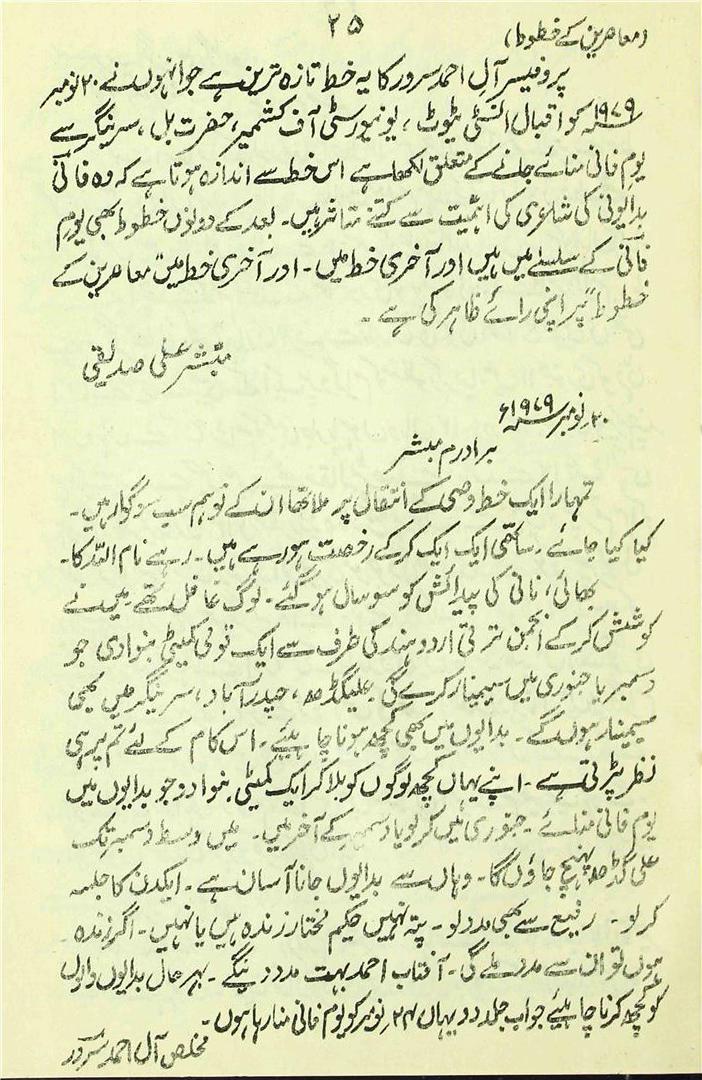 ۲۵
(معاصرین کے خطوط)
پروفیسر آلِ احمد سرور کا یہ خط تازہ ترین ہے جو انہوں نے ۲۰ نومبر
۱۹۷۹ء کو اقبال انسٹی ٹیوٹ، یونیورسٹی آف کشمیر، حضرت بل، سرینگر سے
یوم فانی منائے جانے کے متعلق لکھا ہے اس خط سے اندازہ ہوتا ہے کہ وہ فانی
بدایونی کی شاعری کی اہمیت سے کتنے متاثر ہیں۔ بعد کے دونوں خطوط بھی یوم
فانی کے سلسلے میں ہیں اور آخری خط میں۔ اور آخری خط میں معاصرین کے
خطوط" پر اپنی رائے ظاہر کی ہے۔
مبشر علی صدیقی
۲۰ نومبر ۱۹۷۹ء
برادرم مبشر
تمہارا ایک خط وصی کے انتقال پر ملا تھا ان کے تو ہم سب سوگوار ہیں۔
کیا کیا جائے۔ ساتھی ایک ایک کر کے رخصت ہو رہے ہیں۔ رہے نام اللہ کا۔
بھائی، فانی کی پیدائش کو سو سال ہو گئے۔ لوگ غافل تھے۔ میں نے
کوشش کر کے انجمن ترقی اردو ہند کی طرف سے ایک قومی کمیٹی بنوا دی جو
دسمبر یا جنوری میں سیمینار کرے گی۔ علیگڑھ، حیدرآباد، سرینگر میں بھی
سیمینار ہوں گے۔ بدایوں میں بھی کچھ ہونا چاہیئے۔ اس کام کے لئے تم پر ہی
نظر پڑتی ہے۔ اپنے یہاں کچھ لوگوں کو بلا کر ایک کمیٹی بنوا دو جو بدایوں میں
یوم فانی منائے۔ جنوری میں کر لو یا دسمبر کے آخر میں۔ میں وسط دسمبر تک
علی گڈھ پہنچ جاؤں گا۔ وہاں سے بدایوں جانا آسان ہے۔ ایکدن کا جلسہ
کر لو۔ رفیع سے بھی مدد لو۔ پتہ نہیں حکیم مختار زندہ ہیں یا نہیں۔ اگر زندہ
ہوں تو ان سے مدد ملے گی۔ آفتاب احمد بہت مدد دینگے۔ بہرحال بدایوں والوں
کو کچھ کرنا چاہیئے جواب جلد دو یہاں ۲۴ نومبر کو یوم فانی منا رہا ہوں۔
مخلص آل احمد سرور